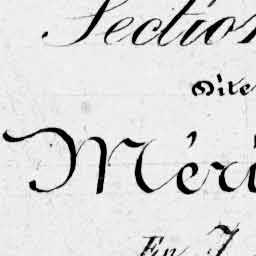 Section
Dite
Méri
En J